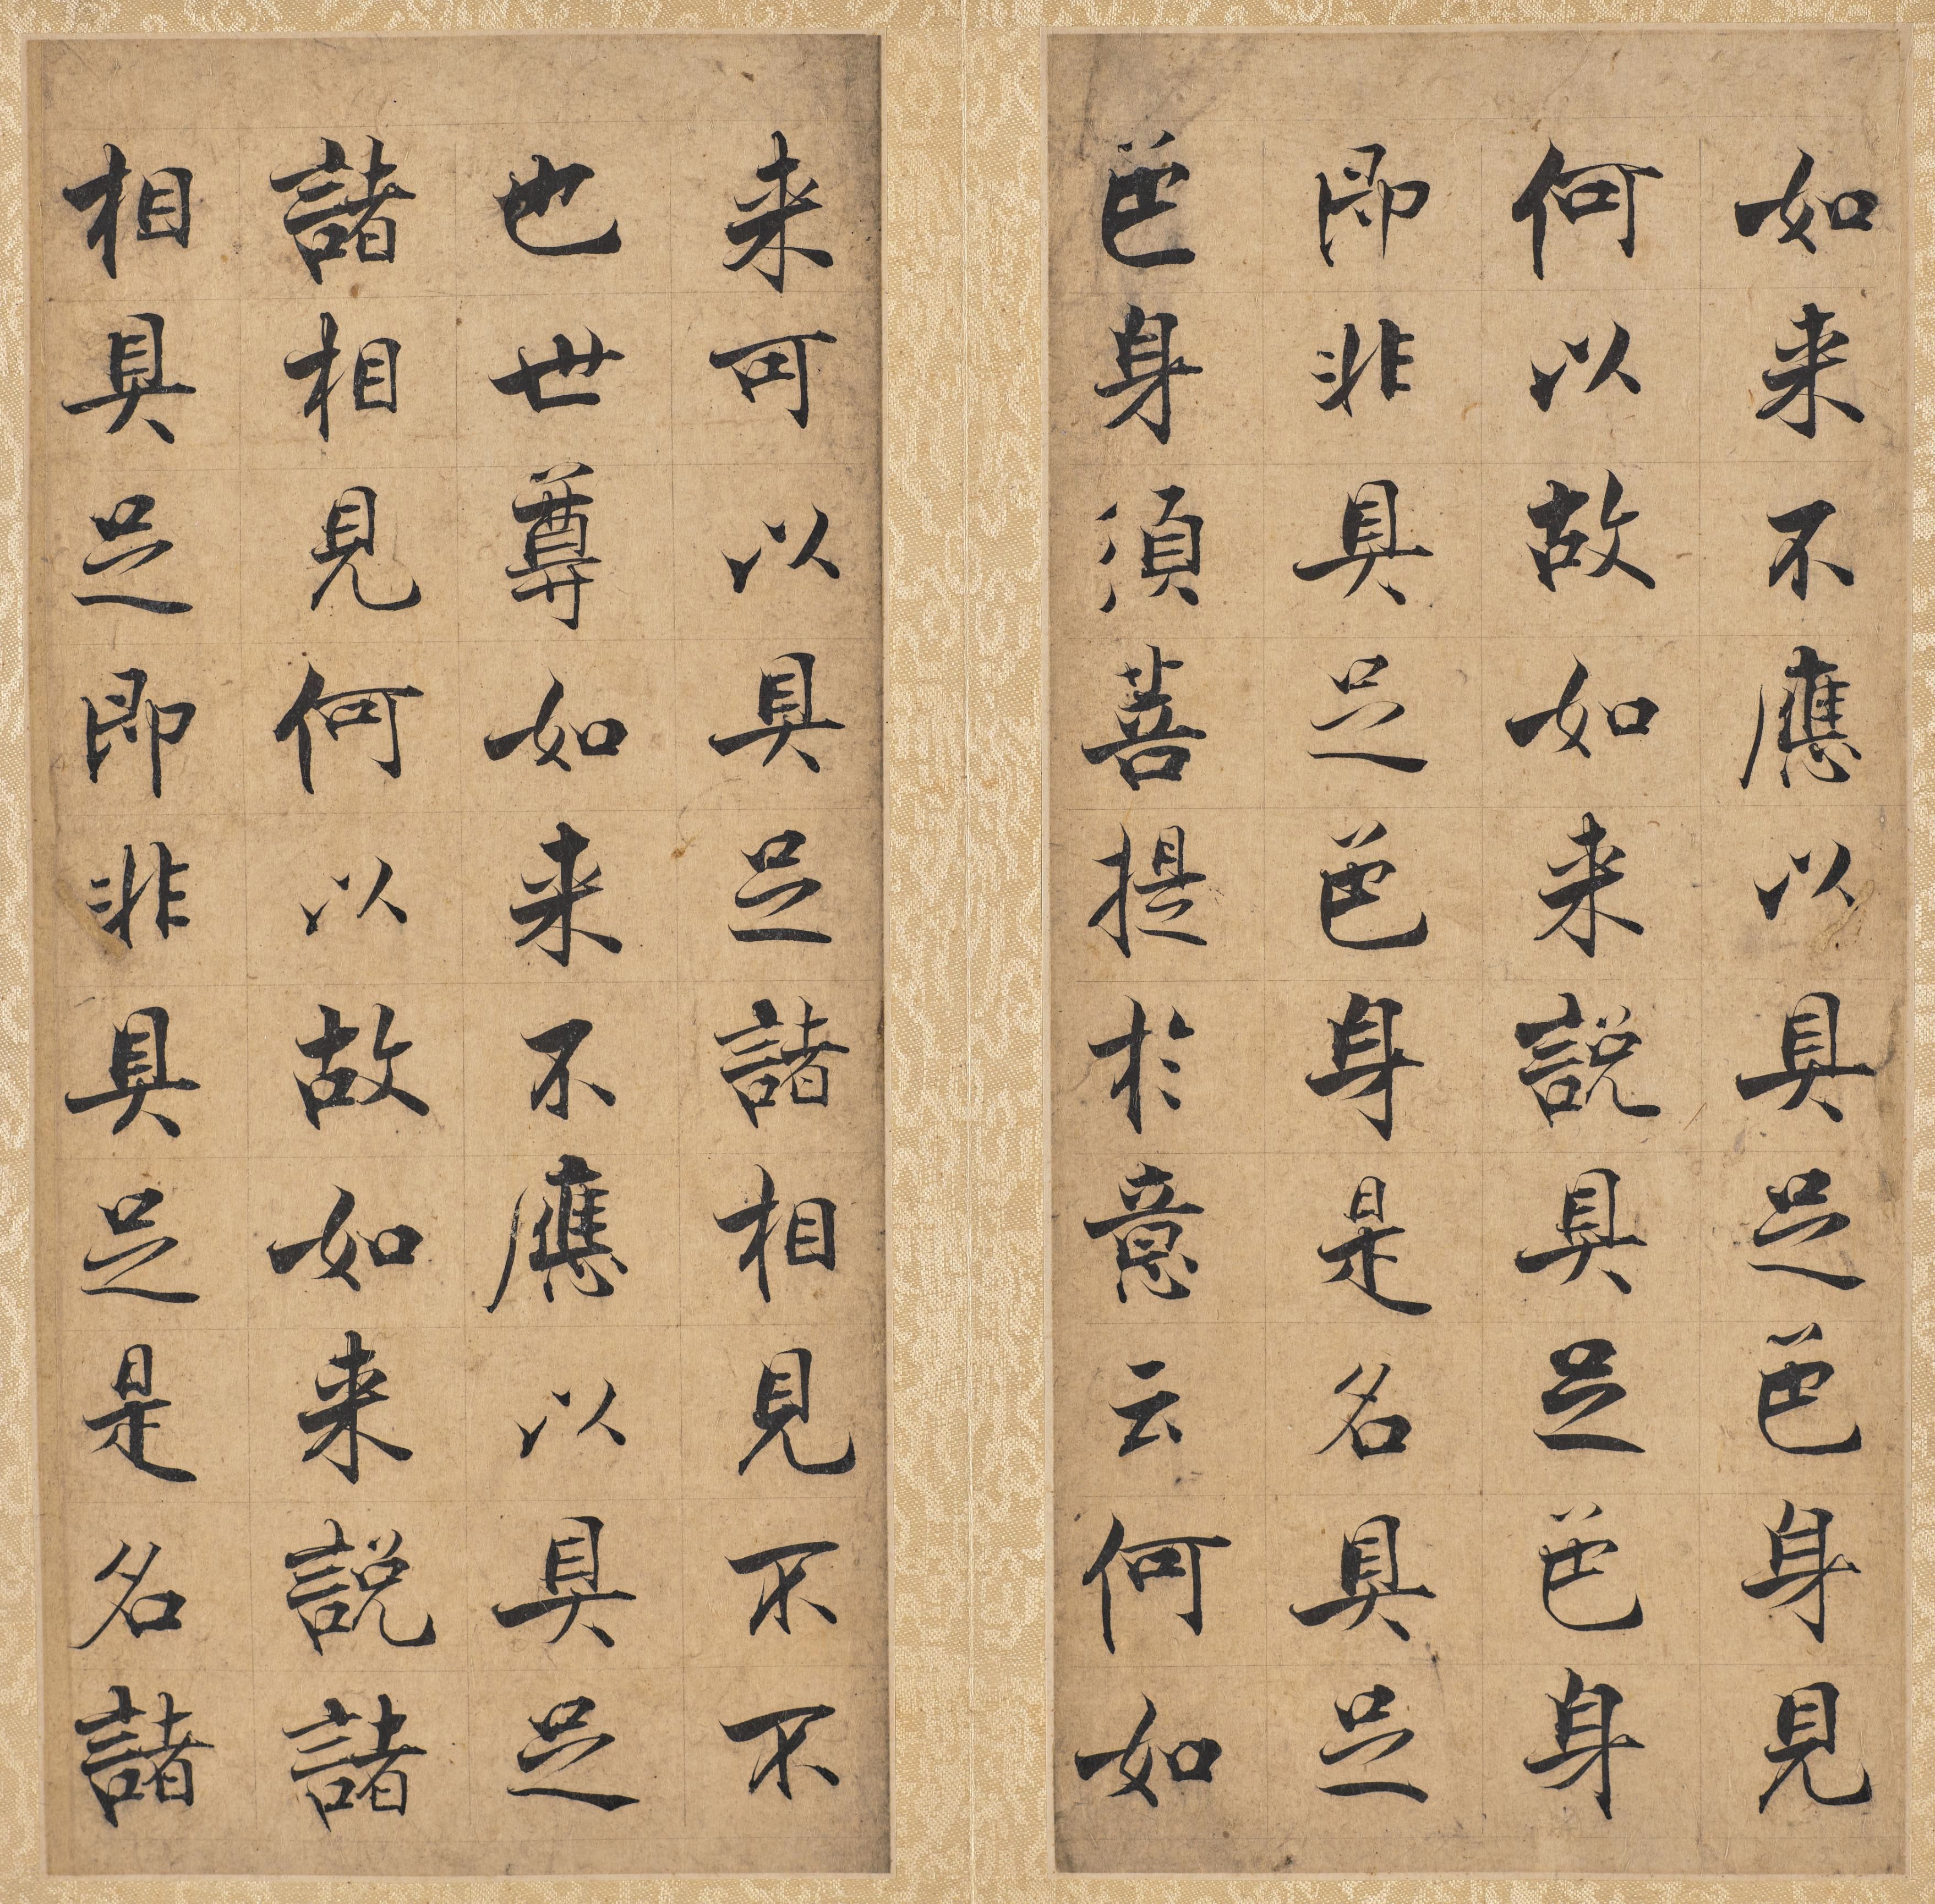 如来不應以具足色身見
何以故如来說具足色身
即非具足色身是名具足
色身須菩提於意云何如
来可以具足諸相見不不
也世尊如来不應以具足
諸相見何以故如来說諸
相具足即非具足是名諸